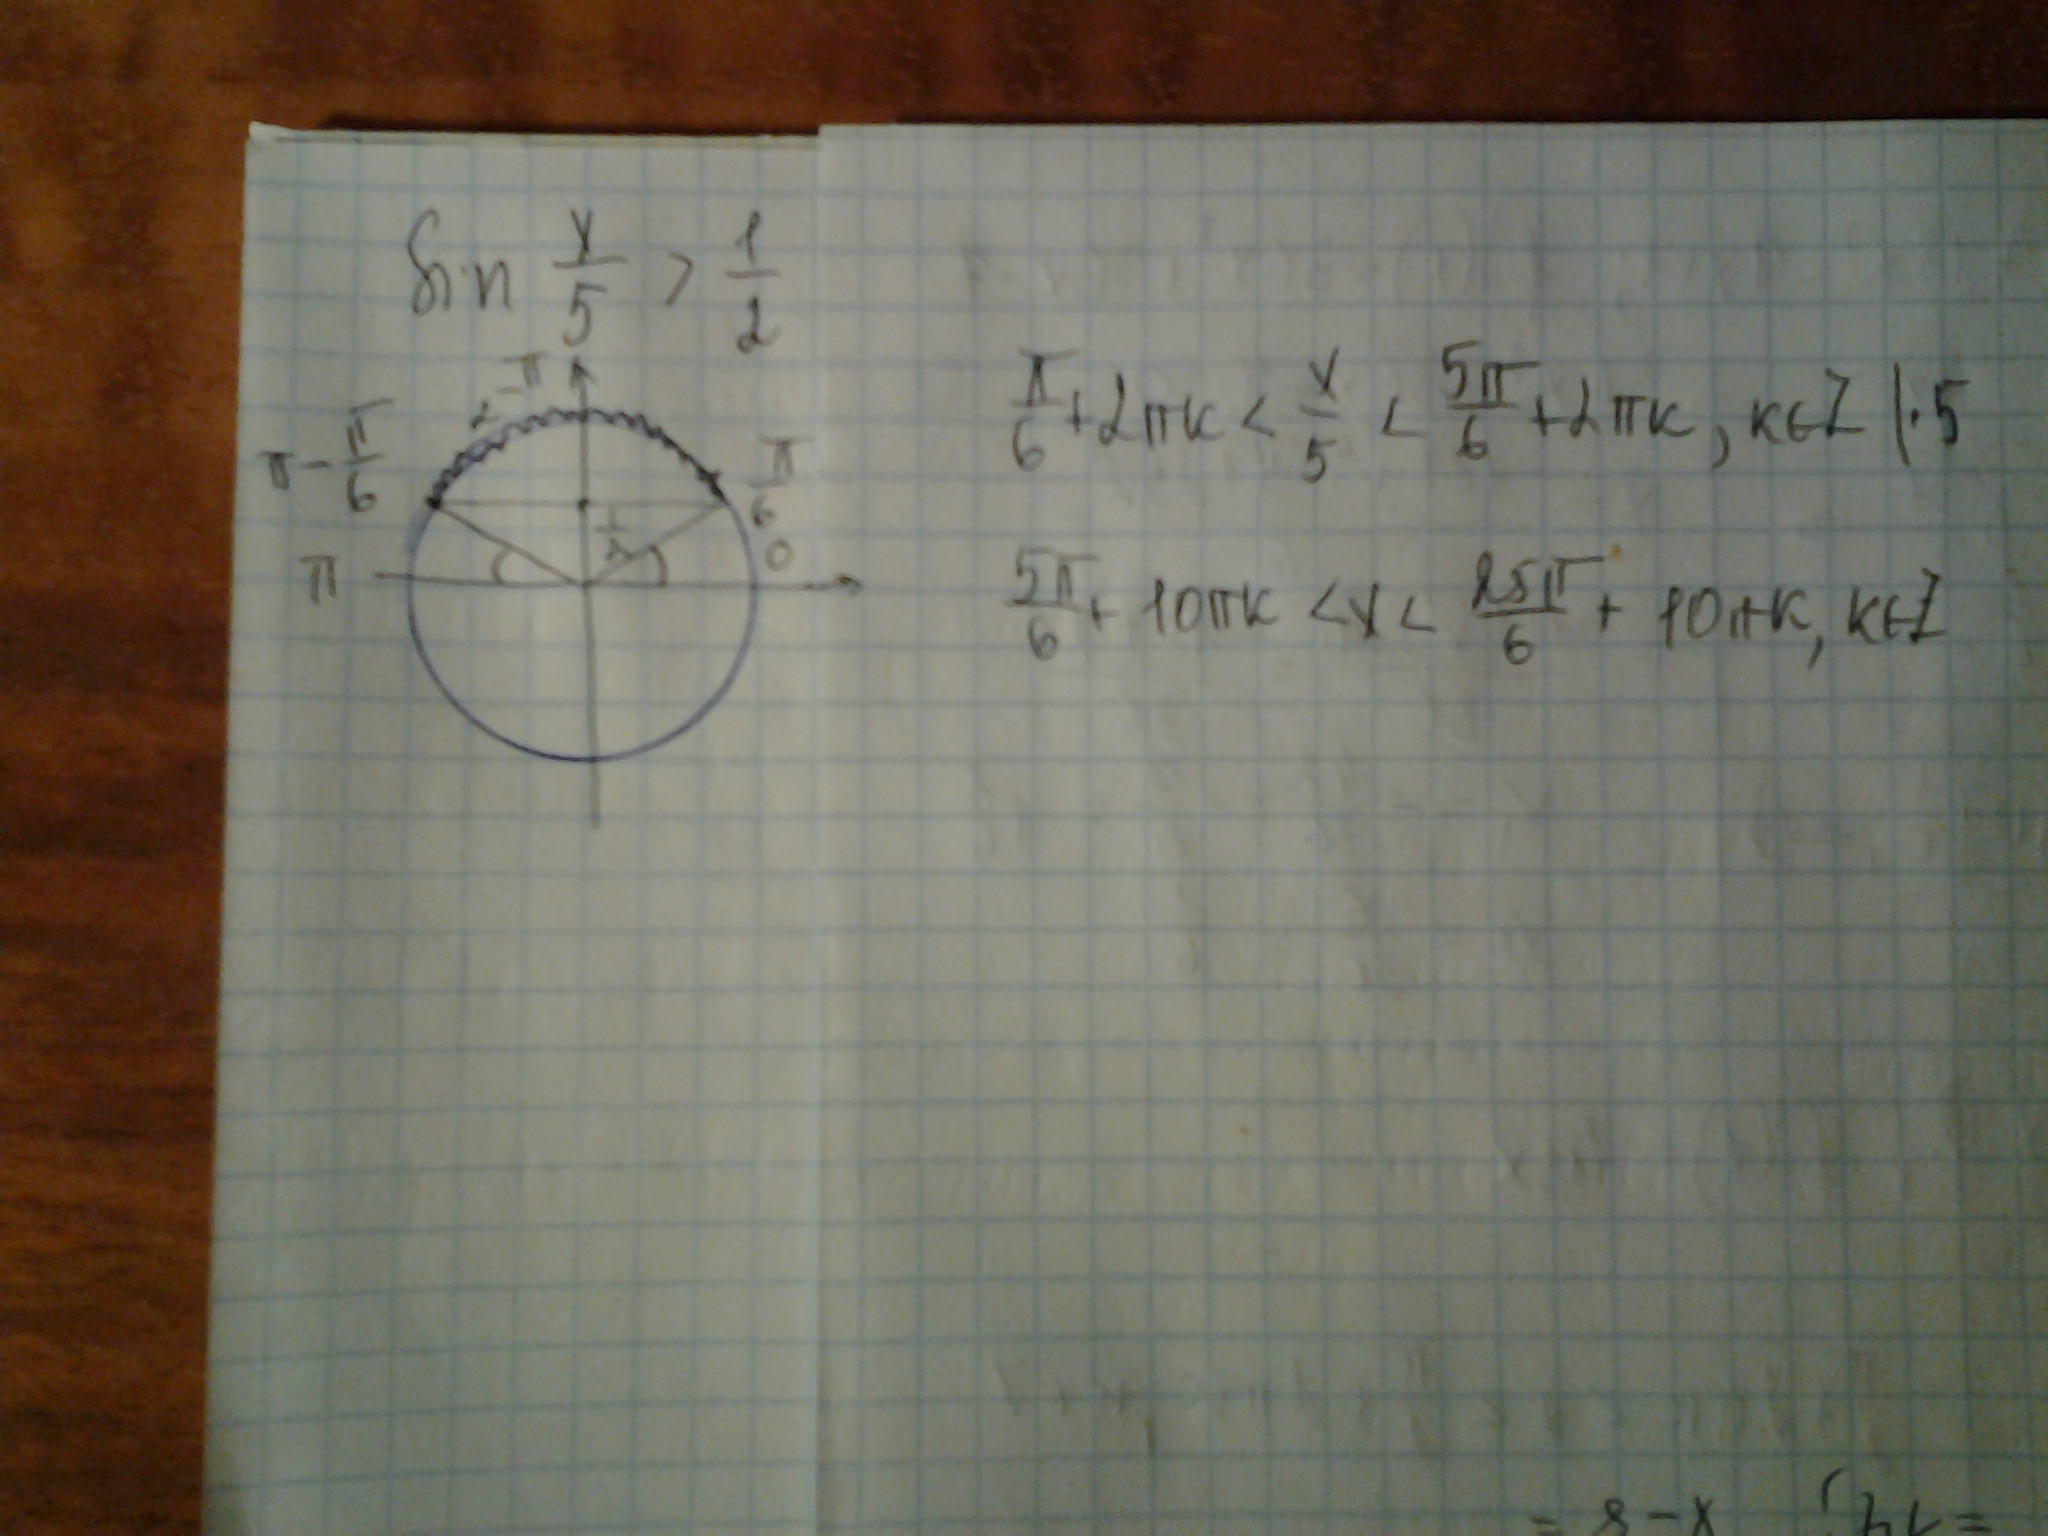 sin x/5 > 1/2
π/2
π - π/6
π/6
1/2
π
0
π/6 + 2πk < x/5 < 5π/6 + 2πk, k∈Z |·5
5π/6 + 10πk < x < 25π/6 + 10πk, k∈Z